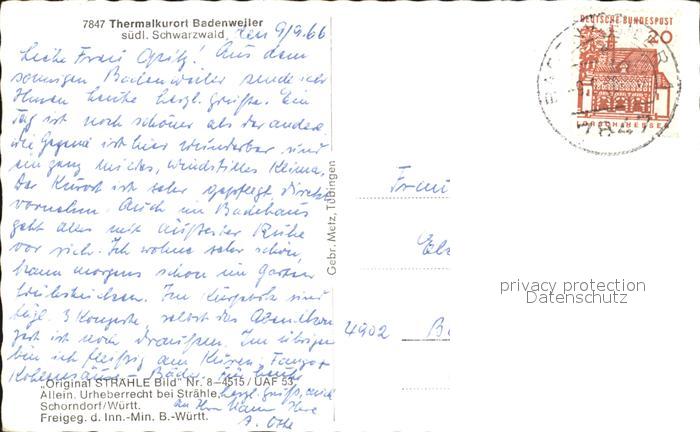 7847 Thermalkurort Badenweiler
südl. Schwarzwald, den 9/9.66
Liebe Frau Opitz! Aus dem
sonnigen Badenweiler sende ich
Ihnen heute herzl. Grüße. Ein
Tag ist noch schöner als der andere
die Gegend ist hier wunderbar und
ein ganz mildes, windstilles Klima.
Der Kurort ist sehr gepflegt, direkt
vornehm. Auch im Badehaus
geht alles mit äußerster Ruhe
vor sich. Ich wohne sehr schön,
kann morgens schon im Garten
frühstücken. Im Kurpark sind
tägl. 3 Konzerte, selbst das Abendkon
zert ist noch draußen. Im übrigen
bin ich fleißig am Kuren. Fango
Kohlensäure-Bäder. Für heute
herzl. Grüße, auch
an Ihren Mann Ihre
"Original STRÄHLE Bild" Nr. 8-4515/UAF 53
Allein. Urheberrecht bei Strähle,
Schorndorf/Württ.
Freigeg. d. Inn.-Min. B.-Württ.
Gebr. Metz, Tübingen
DEUTSCHE BUNDESPOST
20
LORSCH/HESSEN
7847
Frau
4902
privacy protection
Datenschutz